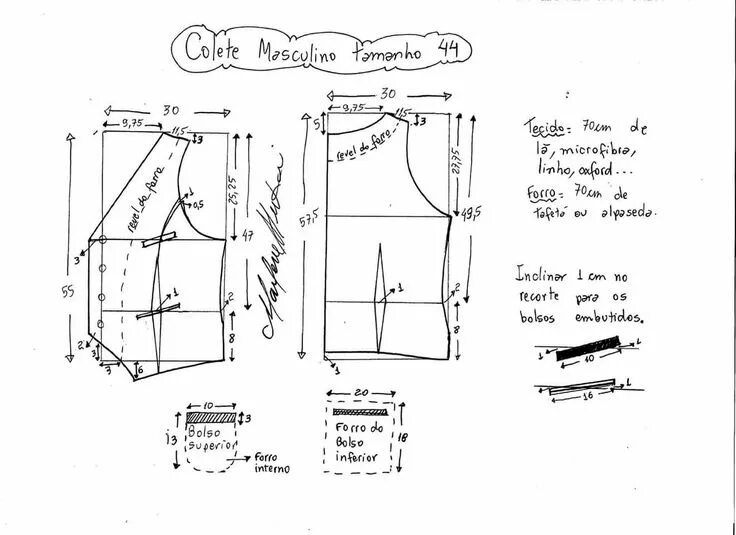 Colete Masculino tamanho 44
30
9,75
11,5
3
revel do forro
1
0,5
25,25
47
3
55
1
2
8
2
3
3
6
30
9,75
11,5
5
3
revel do forro
27,75
57,5
49,5
1
2
8
Tecido = 70cm de
lã, microfibra,
linho, oxford...
Forro = 70cm de
tafetá ou alpaseda.
Inclinar 1 cm no
recorte para os
bolsos embutidos.
1
10
1
1
16
1
10
3
13
Bolso
superior
Forro
interno
20
18
Forro do
Bolso
inferior